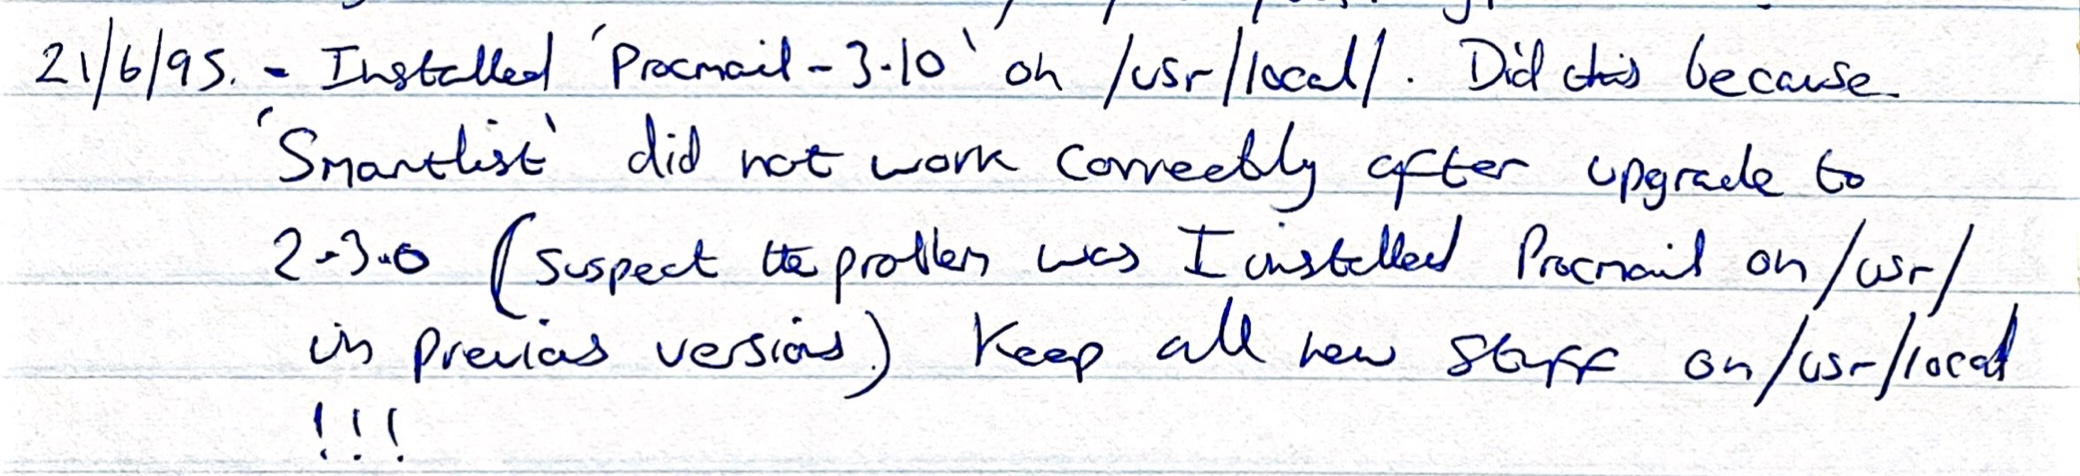 21/6/95. - Installed 'Procmail-3.10' on /usr/local/. Did this because
'Smartlist' did not work correctly after upgrade to
2.3.0 (suspect the problem was I installed Procmail on /usr/
in previous versions.) Keep all new stuff on /usr/local
!!!